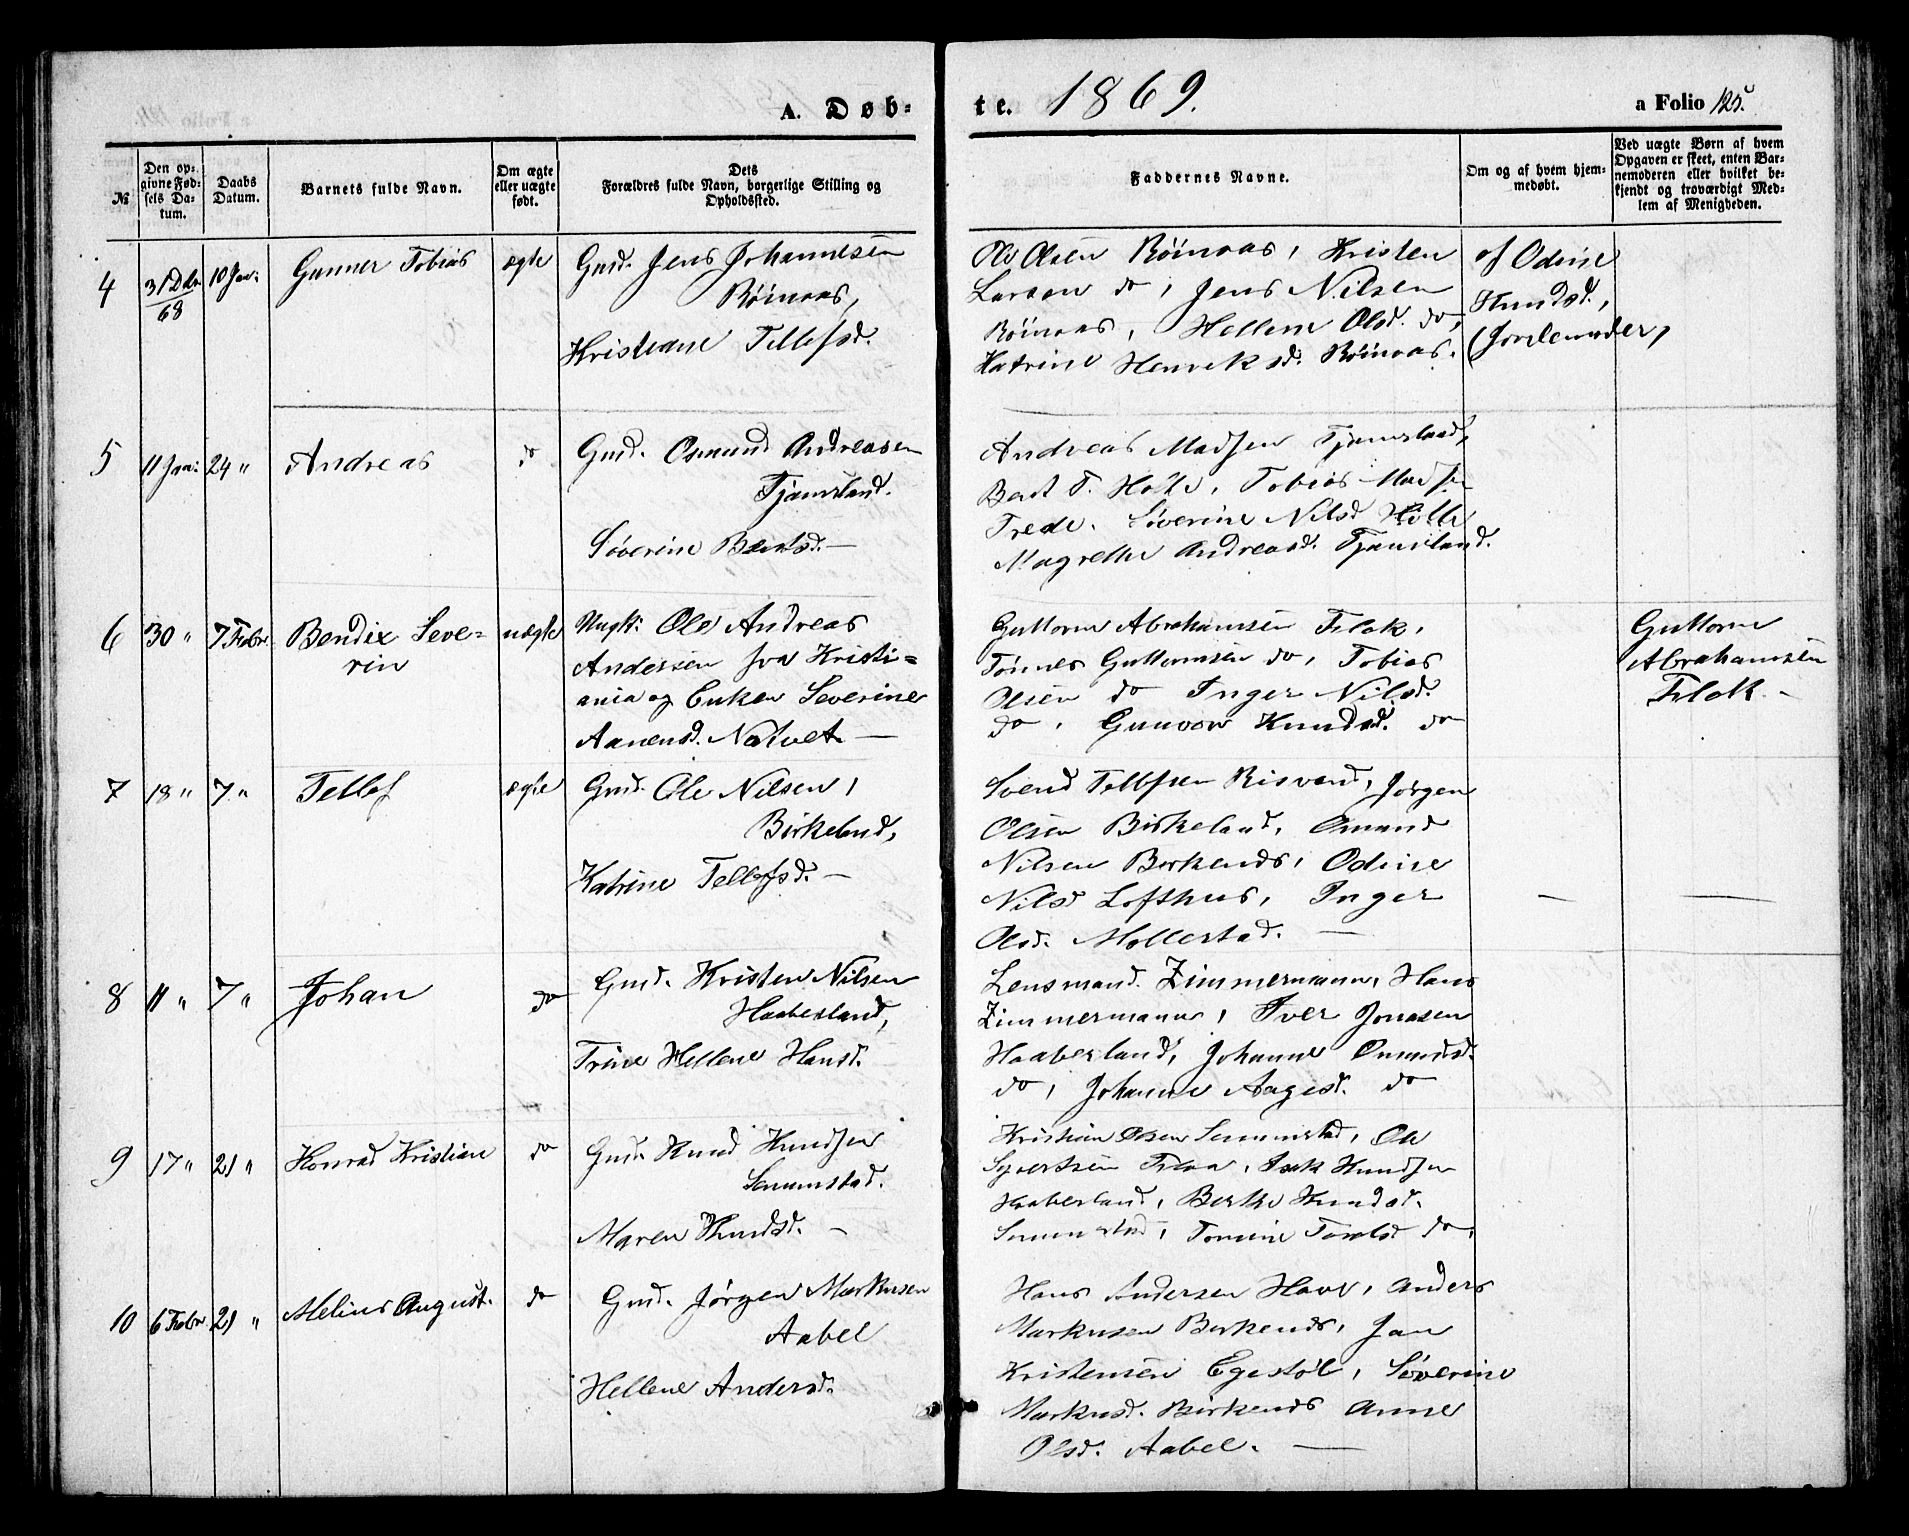 A. Døb-
te. 1869.
a Folio 125.
№
Den op-
givne Fød-
sels Da-
tum.
Daabs
Datum.
Barnets fulde Navn.
Om ægte
eller uægte
født.
Dets
Forældres fulde Navn, borgerlige Stilling og
Opholdsted.
Faddernes Navne.
Om og af hvem hjem-
medøbt.
Ved uægte Børn af hvem
Opgaven er skeet, enten Bar-
nemoderen eller hvilket be-
kjendt og troværdigt Med-
lem af Menigheden.
4 31 Dbr 68 10 Jan: Gunner Tobias ægte Gmd. Jens Johannesen
Røinaas,
Kristiane Tellefsd.
Ole Olsen Røinaas, Kristen
Larsen do, Jens Nilsen
Røinaas, Hellene Olsd. do,
Katrine Henriksd. Røinaas.
af Odine
Knudsd.,
(Jordemoder)
5 11 Jan: 24 " Andreas do Gmd. Osmund Andreasen
Tjamsland.
Søverine Bentsd. —
Andreas Madsen Tjamsland,
Bent T. Holte, Tobias Madsen
Trede. Søverine Nilsd Holte
Magrethe Andreasd. Tjamsland.
6 30 " 7 Febr. Bendix Seve-
rin
uægte Ungk. Ole Andreas
Andersen fra Kristi-
ania og Enken Severine
Aanensd. Natvet. —
Guttorm Abrahamsen Flak,
Tønnes Guttormsen do, Tobias
Olsen do Inger Nilsd.
do, Gunvor Knudsd. do
Guttorm
Abrahamsen
Flak —
7 18 " 7 " Tellef ægte Gmd. Ole Nilsen,
Birkeland,
Katrine Tellefsd. —
Svend Tellefsen Risvand, Jørgen
Olsen Birkeland, Omund
Nilsen Birkenes, Odine
Nilsd Lofthus, Inger
Olsd. Mollestad. —
— —
8 11 " 7 " Johan do Gmd. Kristen Nilsen
Haabesland,
Trine Hellene Hansd.
Lensmand. Zimmermann, Hans
Zimmermann, Iver Jonasen
Haabesland, Johanne Omundsd.
do, Johanne Aagesd. do
9 17 " 21 " Konrad Kristian do Gmd. Knud Knudsen
Senumstad.
Maren Knudsd. —
Kristian Olsen Senumstad, Ole
Syvertsen Flaa, Isak Knudsen
Haabesland, Berthe Knudsd.
Senumstad, Tomine Taralsd do,
10 6 Febr. 21 " Melius August. do Gmd. Jørgen Markusen
Aabel
Hellene Andersd.
Hans Andersen Hove, Anders
Markusen Birkenes, Jan
Kristensen Egestøl, Søverine
Markusd. Birkenes Anne
Olsd. Aabel. —